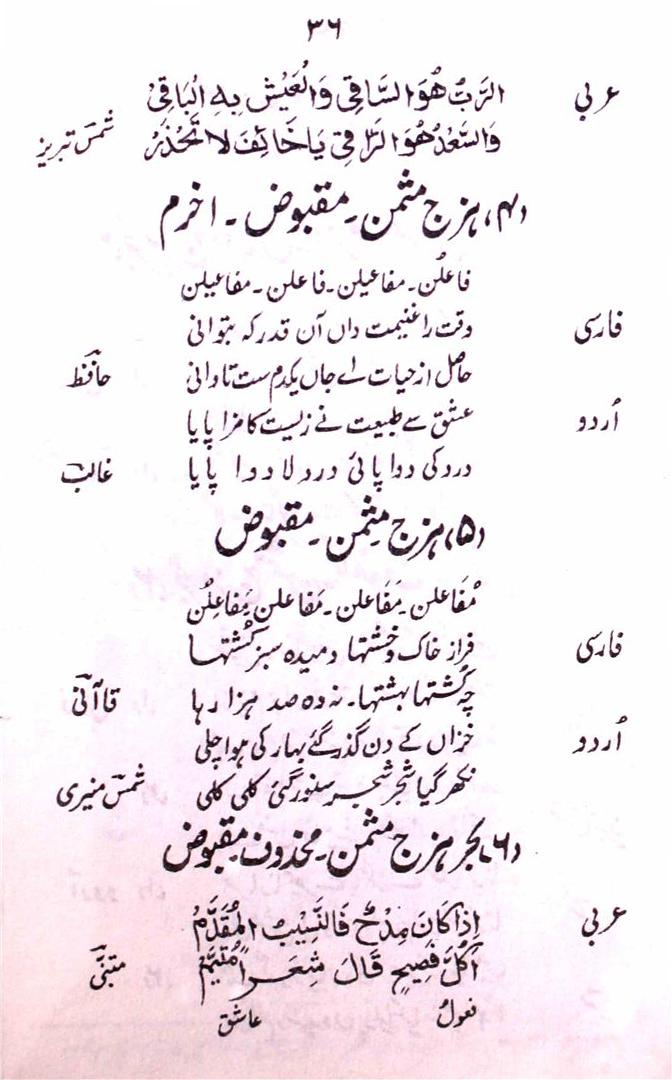 ۳۶
عربی الرَبُّ هُوَ السَاقِی وَالْعَیْش بِهِ الْبَاقِیْ
وَالسَّعْدُ هُوَ الرَّاقِیْ یَا خَائِفَ لَا تَحْذَرُ شمسؔ تبریز
(۴) ہزج مثمن۔ مقبوض۔ اخرم
فاعلُن۔ مفاعیلن۔ فاعلن۔ مفاعیلن
فارسی وقت را غنیمت داں آن قدر کہ بتوانی
حاصل از حیات اے جاں یکدم ست تا دانی حافظؔ
اُردو عشق سے طبیعت نے زیست کا مزا پایا
درد کی دوا پائی درد لا دوا پایا غالبؔ
(۵) ہزج مثمن۔ مقبوض
مُفاعلن۔ مَفَاعلن۔ مَفاعلن۔ مَفاعِلُن
فارسی فراز خاک و خشتہا دمیدہ سبز کشتہا
چہ کشتہا بہشتہا۔ نہ دہ صد ہزارہا قاآنیؔ
اُردو خزاں کے دن گذر گئے بہار کی ہوا چلی
نکھر گیا شجر شجر سنور گئی کلی کلی شمسؔ منیری
(۶) بحر ہزج مثمن۔ محذوف مقبوض
عربی اِذَا کَانَ مِدْحٌ فَالنَّسِیْبُ الْمُقَدَّمُ
اَکُلُّ فَصِیْحٍ قَالَ شِعَراً مُتَیَّمُ متنبیؔ
فعولُ عاشق